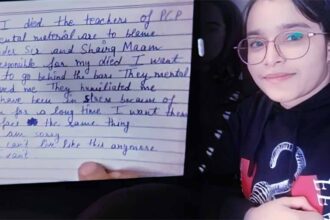 I died the teachers of P.C.P
ental material are to blame
der Ser and Shairg Maam
sponsible for my died I want
to go behind the bars They mental
ed me They humiliated me
have been in stress because of
for a long time I want them
face the same thing
am sorry
can't live like this anymore
cant